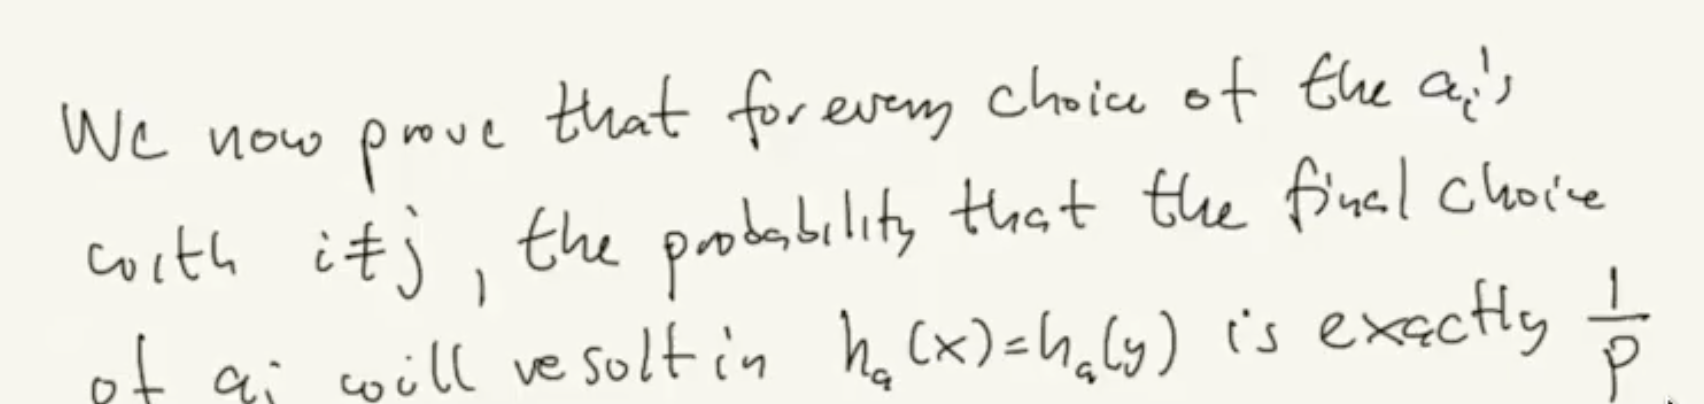 We now prove that for every choice of the aᵢ's
with i≠j, the probability that the final choice
of aⱼ will result in hₐ(x)=hₐ(y) is exactly 1/p.